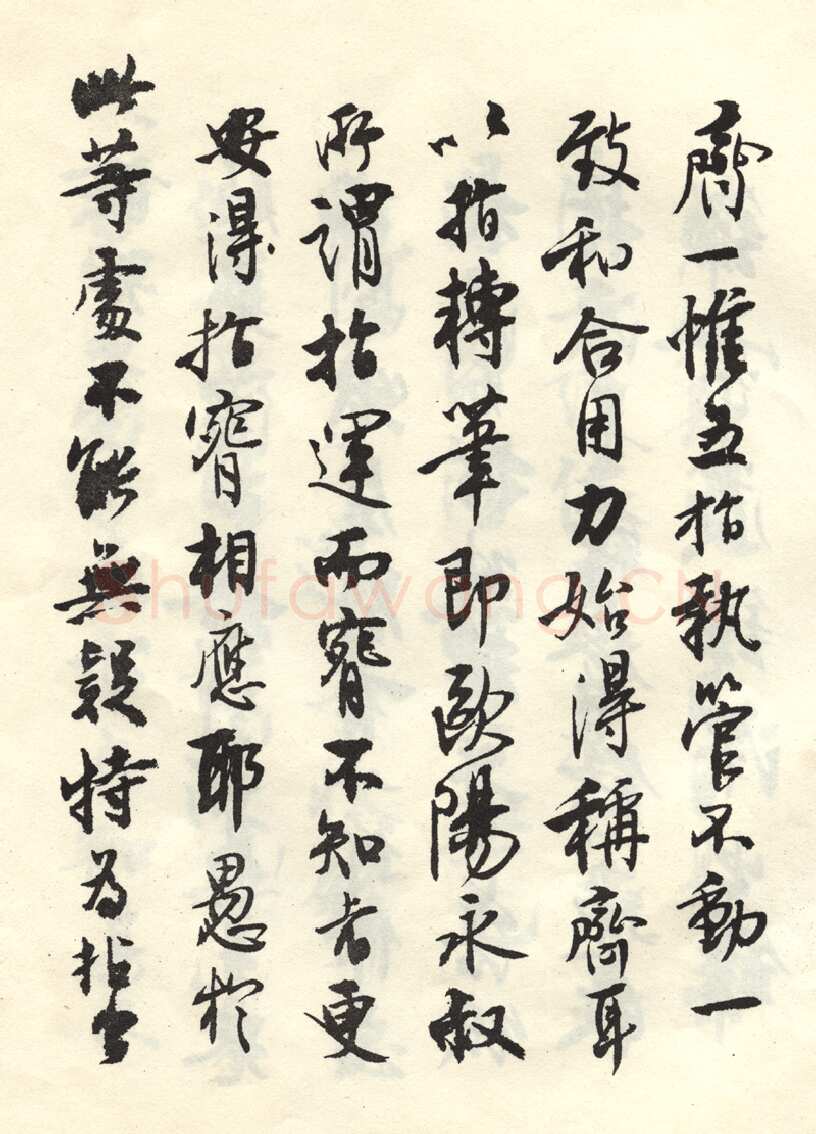 齊一惟五指執管不動一
致和合用力始得稱齊耳
以指轉筆即歐陽永叔
所謂指運而窾不知者更
安得指窾相應耶愚於
此等處不能無疑特為拈出
shufawang.CN